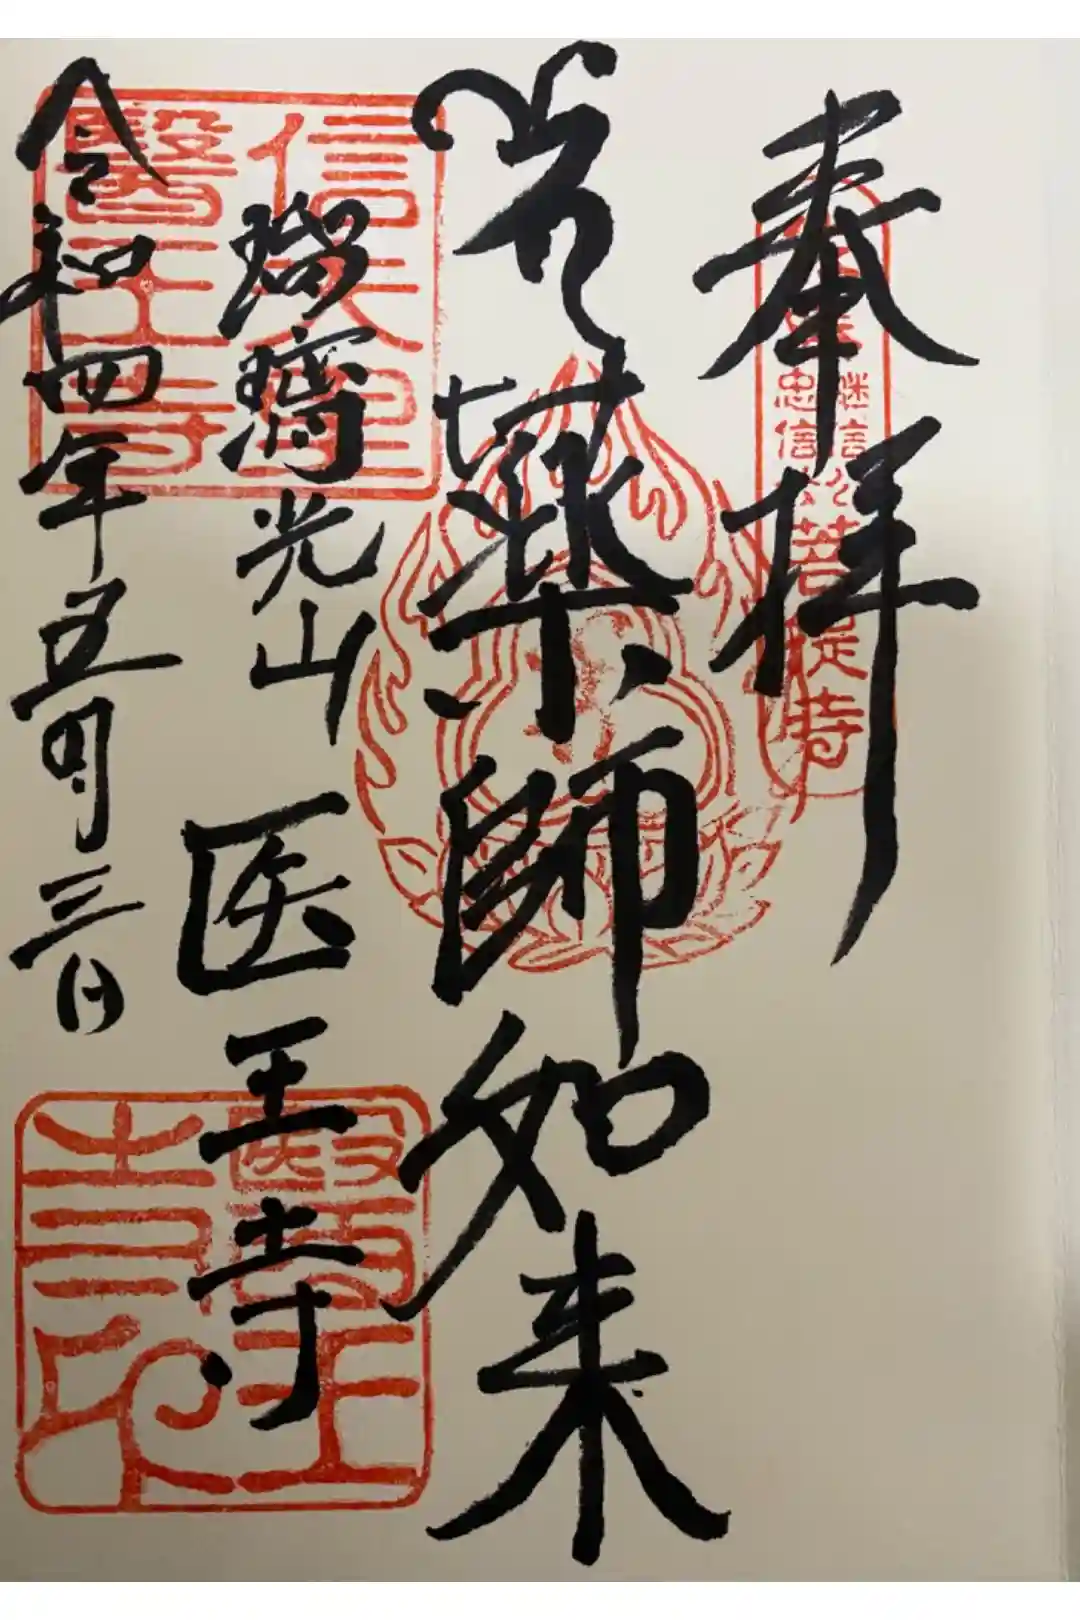 奉拝
継信公
忠信公
菩提寺
薬師如来
瑠璃光山 医王寺
令和四年五月三日
信夫
醫王寺
醫王
寺印